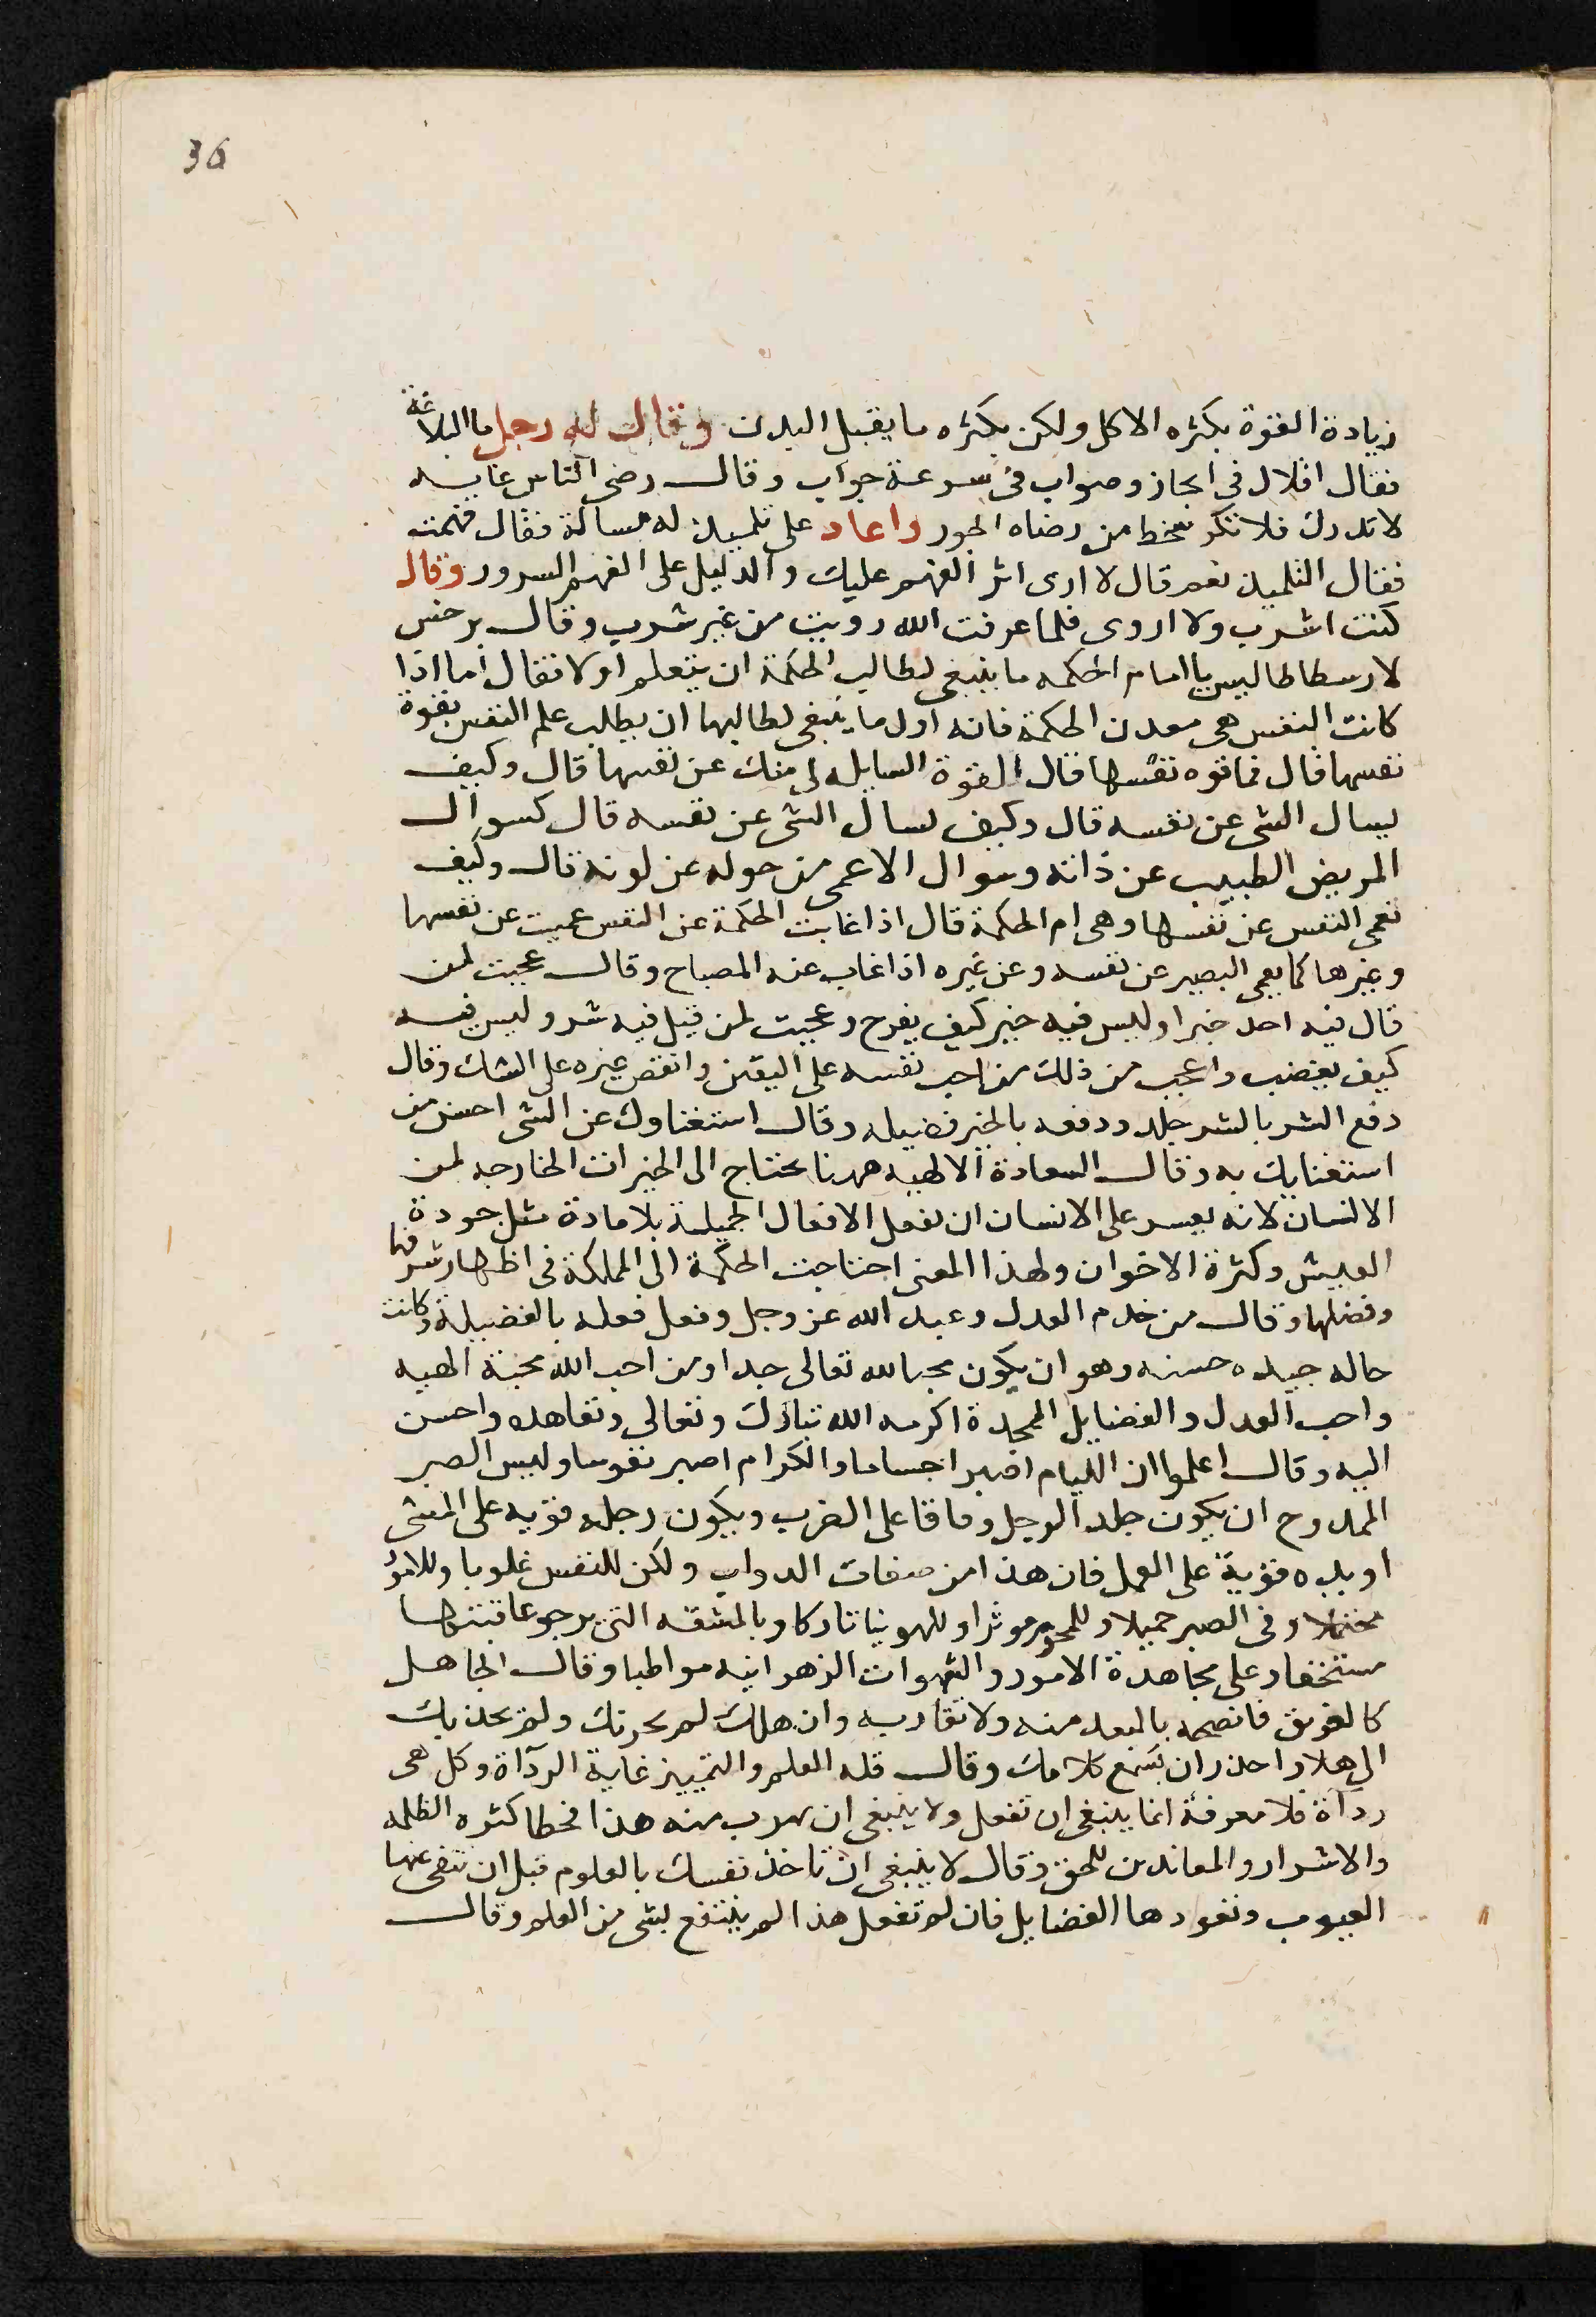 36
زيادة القوة بكثره الاكل ولكن بكثره ما يقبل البدن وقال له رجل ما البلاغة
فقال اقلال فى ايجاز وصواب فى سرعة جواب وقال رضى الناس غايه
لا تدرك فلا تكره سخط من رضاه الجور واعاد على تلميذ له مسالة فقال فهمت
فقال التلميذ نعم قال لا ارى اثر الفهم عليك والدليل على الفهم السرور وقال
كنت اشرب ولا اروى فلما عرفت الله رويت من غير شرب وقال برخس
لارسطاطاليس يا امام الحكمه ما ينبغى لطالب الحكمة ان يتعلم اولا فقال اما اذا
كانت النفس هى معدن الحكمة فانه اول ما ينبغى لطالبها ان يطلب علم النفس بقوة
نفسها قال فما قوه نفسها قال القوة السايله لى منك عن نفسها قال وكيف
يسال الشى عن نفسه قال وكيف يسال الشى عن نفسه قال كسوال
المريض الطبيب عن ذاته وسوال الاعمى من حوله عن لونه قال وكيف
تعمى النفس عن نفسها وهى ام الحكمة قال اذا غابت الحكمة عن النفس عميت عن نفسها
وغيرها كما يعمى البصير عن نفسه وعن غيره اذا غاب عنه المصباح وقال عجبت لمن
قال فيه احد خيرا وليس فيه خير كيف يفرح وعجبت لمن قيل فيه شر وليس فيه
كيف يغضب واعجب من ذلك من احب نفسه على اليقين وابغض غيره على الشك وقال
دفع الشر بالشر جلد ودفعه بالخير فضيله وقال استغناوك عن الشى احسن من
استغنايك به وقال السعادة الالهيه ههنا تحتاج الى الخيرات الخارجه لمن
الانسان لانه يعسر على الانسان ان يفعل الافعال الجميلة بلا مادة مثل جودة
العيش وكثرة الاخوان ولهذا المعنى احتاجت الحكمة الى المملكة فى اظهار شرفها
وفضلها وقال من خدم العدل وعبد الله عز وجل وفعل فعله بالفضيلة وكانت
حاله جيده حسنه وهو ان يكون محبا لله تعالى جدا ومن احب الله محبة الهيه
واحب العدل والفضايل الممجدة اكرمه الله تبارك وتعالى وتعاهده واحسن
اليه وقال اعلموا ان الليام اصبر اجساما والكرام اصبر نفوسا وليس الصبر
الممدوح ان يكون جلد الرجل وقاحا على الضرب ويكون رجله قويه على المشى
او يده قوية على العمل فان هذا من صفات الدواب ولكن للنفس غلوبا وللامور
محتملا وفى الصبر جميلا وللحزم موثرا وللهوينا تاركا وبالمشقه التى يرجو عاقبتها
مستخفا وعلى مجاهدة الامور والشهوات الزهوانيه مواظبا وقال الجاهل
كالغريق فانصحه بالبعد منه ولا تقاربه وان هلك لم يحزنك ولم يجذبك
الى هلا واحذر ان يسمع كلامك وقال قله العلم والتمييز غاية الردآة وكل هى
ردآة فلا معرفة انما ينبغى ان تفعل ولا ينبغى ان يهرب منه هذا لخطا كثره الظلمه
والاشرار والمعاندين للحق وقال لا ينبغى ان تاخذ نفسك بالعلوم قبل ان تنفى عنها
العيوب وتعودها الفضايل فان لم تفعل هذا لم ينتفع بشى من العلم وقال